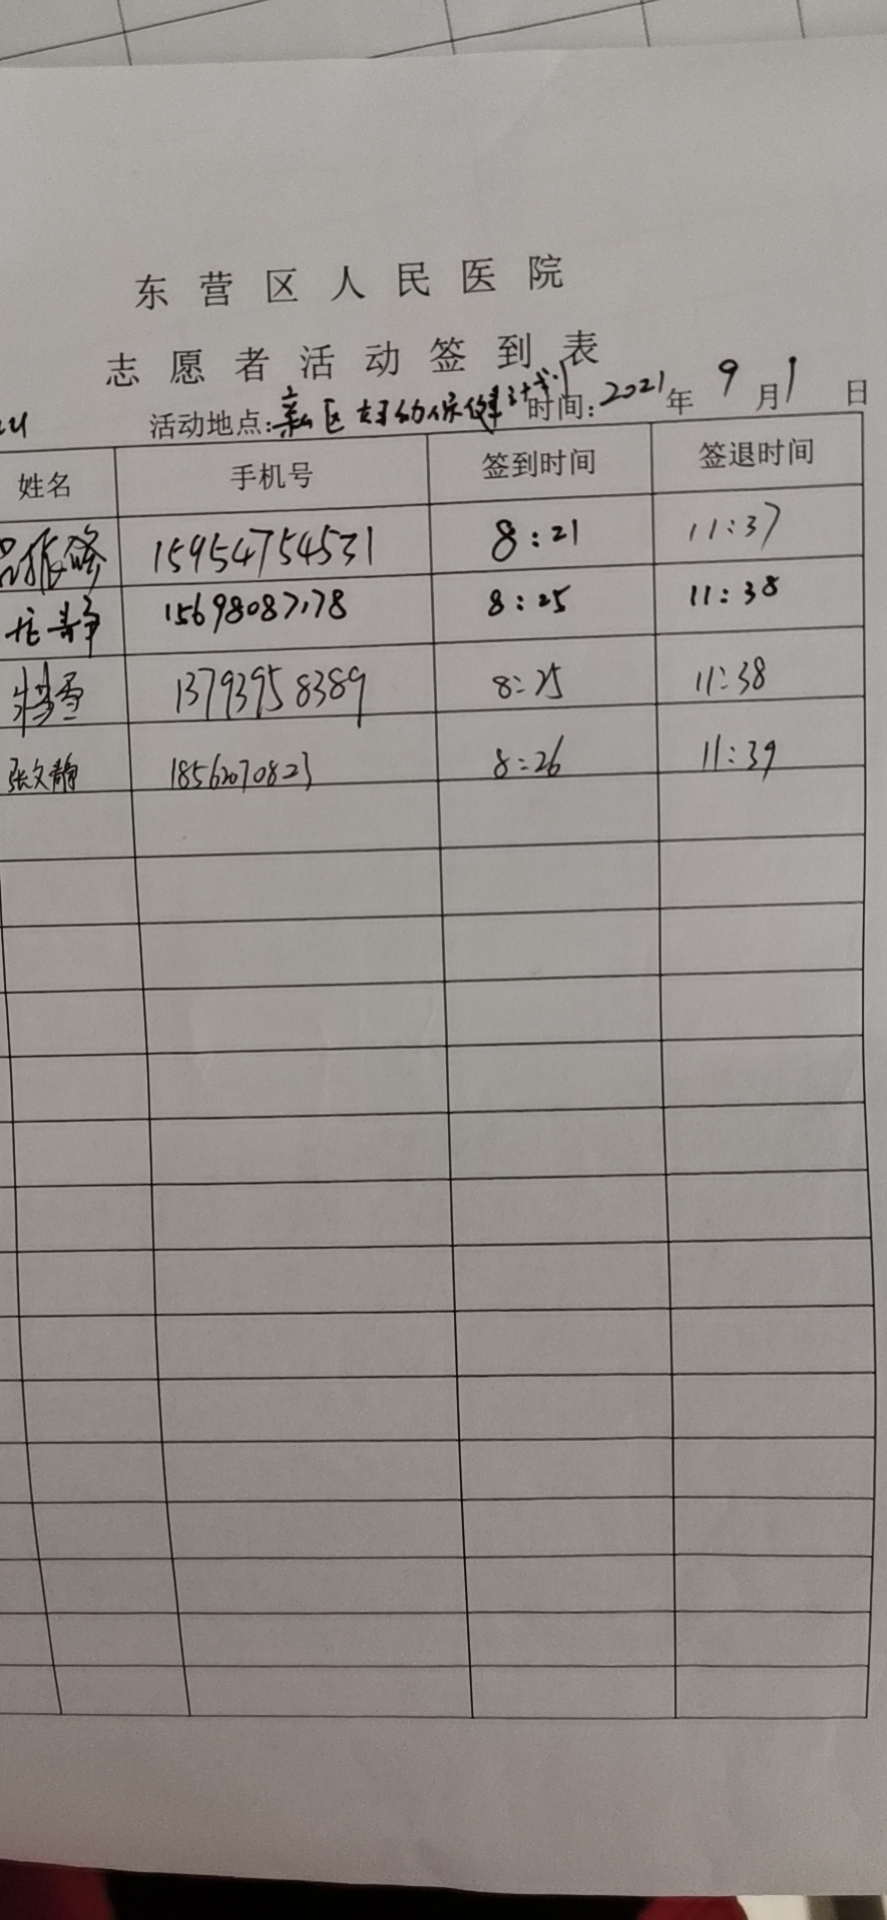 东营区人民医院
志愿者活动签到表
活动地点:新区妇幼保健计划 时间:2021年9月1日
姓名 手机号 签到时间 签退时间
振修 15954754531 8:21 11:37
静 15698087178 8:25 11:38
雪 13793958389 8:25 11:38
张文静 18562070823 8:26 11:39